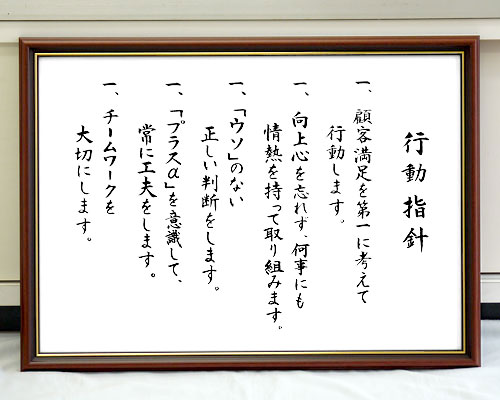 行動指針
一、顧客満足を第一に考えて
行動します。
一、向上心を忘れず、何事にも
情熱を持って取り組みます。
一、「ウソ」のない
正しい判断をします。
一、「プラスα」を意識して、
常に工夫をします。
一、チームワークを
大切にします。